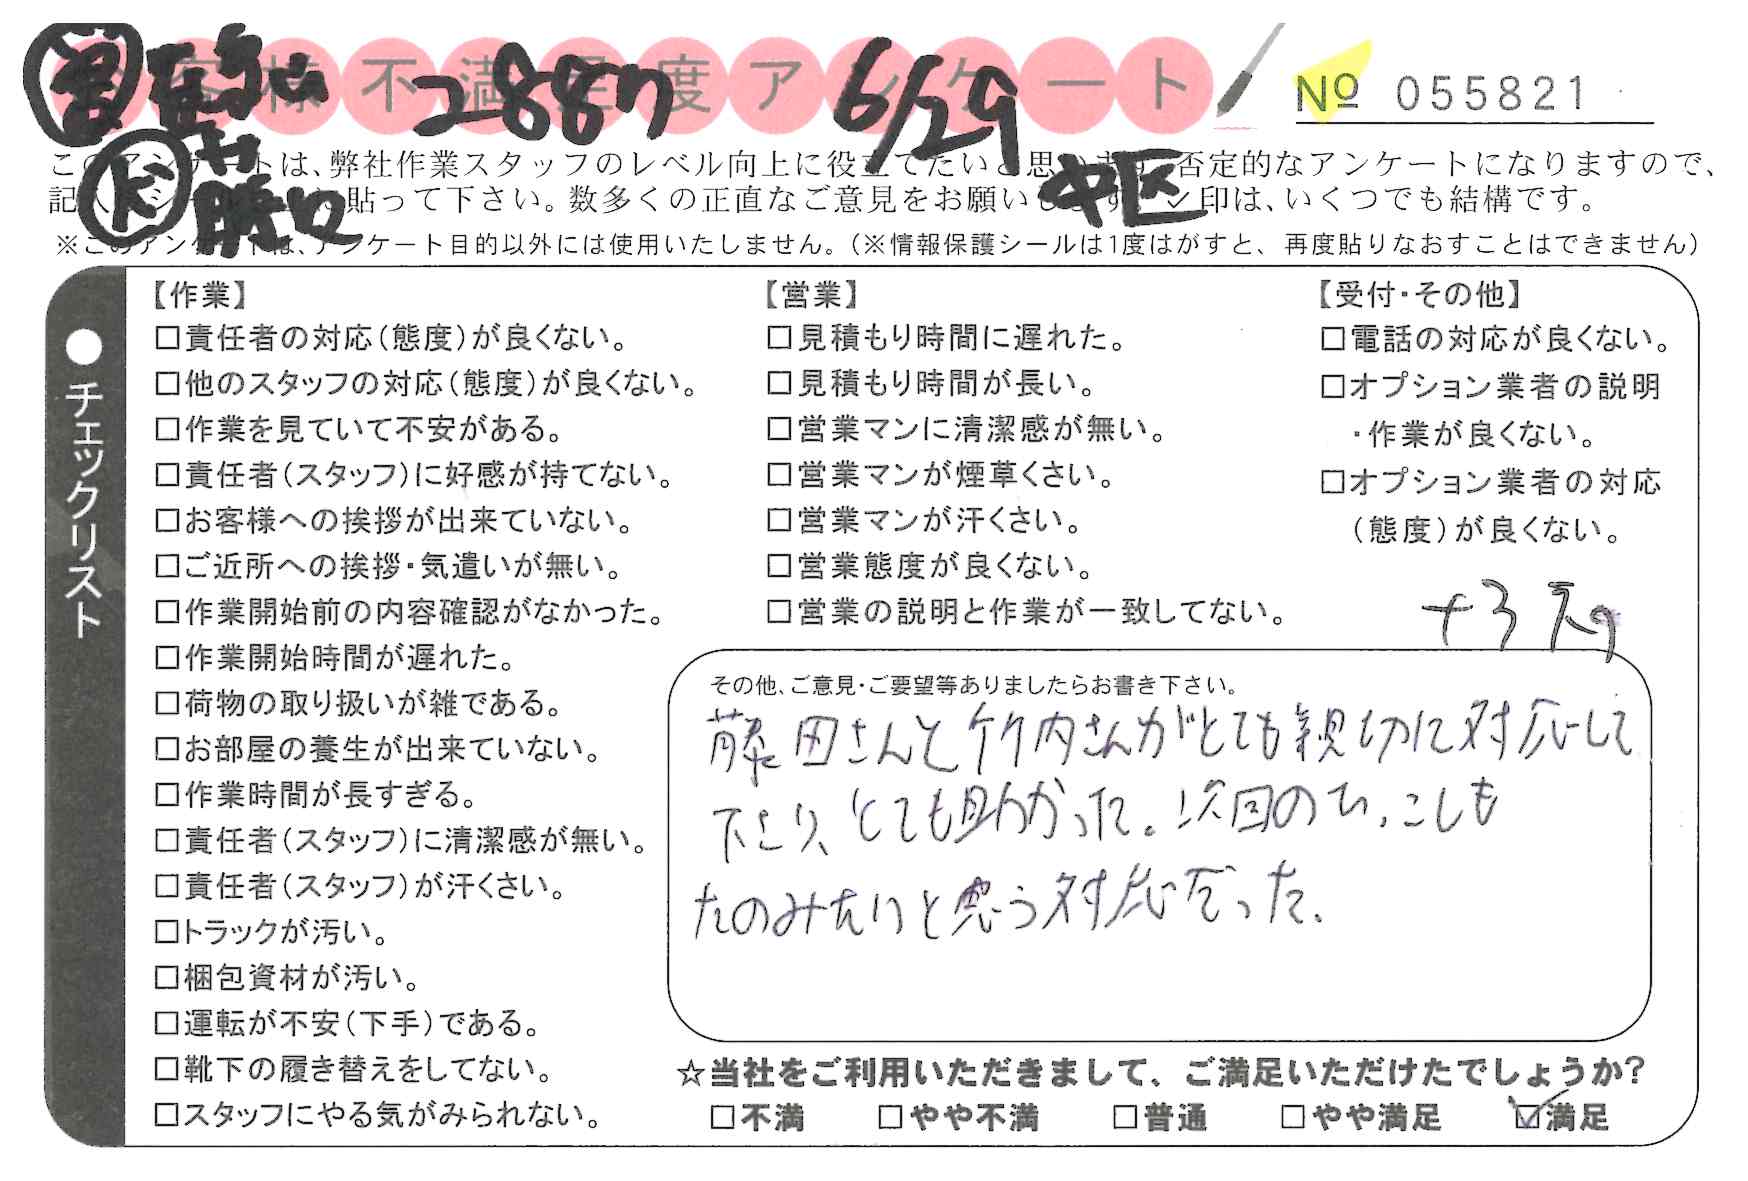 お客様不満足度アンケート
2887 6/29
中区
№ 055821
このアンケートは、弊社作業スタッフのレベル向上に役立てたいと思います。否定的なアンケートになりますので、
記入後シールを上に貼って下さい。数多くの正直なご意見をお願いします。ペン印は、いくつでも結構です。
※このアンケートは、アンケート目的以外には使用いたしません。(※情報保護シールは1度はがすと、再度貼りなおすことはできません)
●チェックリスト
【作業】
□責任者の対応(態度)が良くない。
□他のスタッフの対応(態度)が良くない。
□作業を見ていて不安がある。
□責任者(スタッフ)に好感が持てない。
□お客様への挨拶が出来ていない。
□ご近所への挨拶・気遣いが無い。
□作業開始前の内容確認がなかった。
□作業開始時間が遅れた。
□荷物の取り扱いが雑である。
□お部屋の養生が出来ていない。
□作業時間が長すぎる。
□責任者(スタッフ)に清潔感が無い。
□責任者(スタッフ)が汗くさい。
□トラックが汚い。
□梱包資材が汚い。
□運転が不安(下手)である。
□靴下の履き替えをしてない。
□スタッフにやる気がみられない。
【営業】
□見積もり時間に遅れた。
□見積もり時間が長い。
□営業マンに清潔感が無い。
□営業マンが煙草くさい。
□営業マンが汗くさい。
□営業態度が良くない。
□営業の説明と作業が一致してない。
【受付・その他】
□電話の対応が良くない。
□オプション業者の説明
・作業が良くない。
□オプション業者の対応
(態度)が良くない。
その他、ご意見・ご要望等ありましたらお書き下さい。
藤田さんと竹内さんがとても親切に対応して
下さり、とても助かった。次回のひっこしも
たのみたいと思う対応だった。
☆当社をご利用いただきまして、ご満足いただけたでしょうか?
□不満 □やや不満 □普通 □やや満足 ☑満足